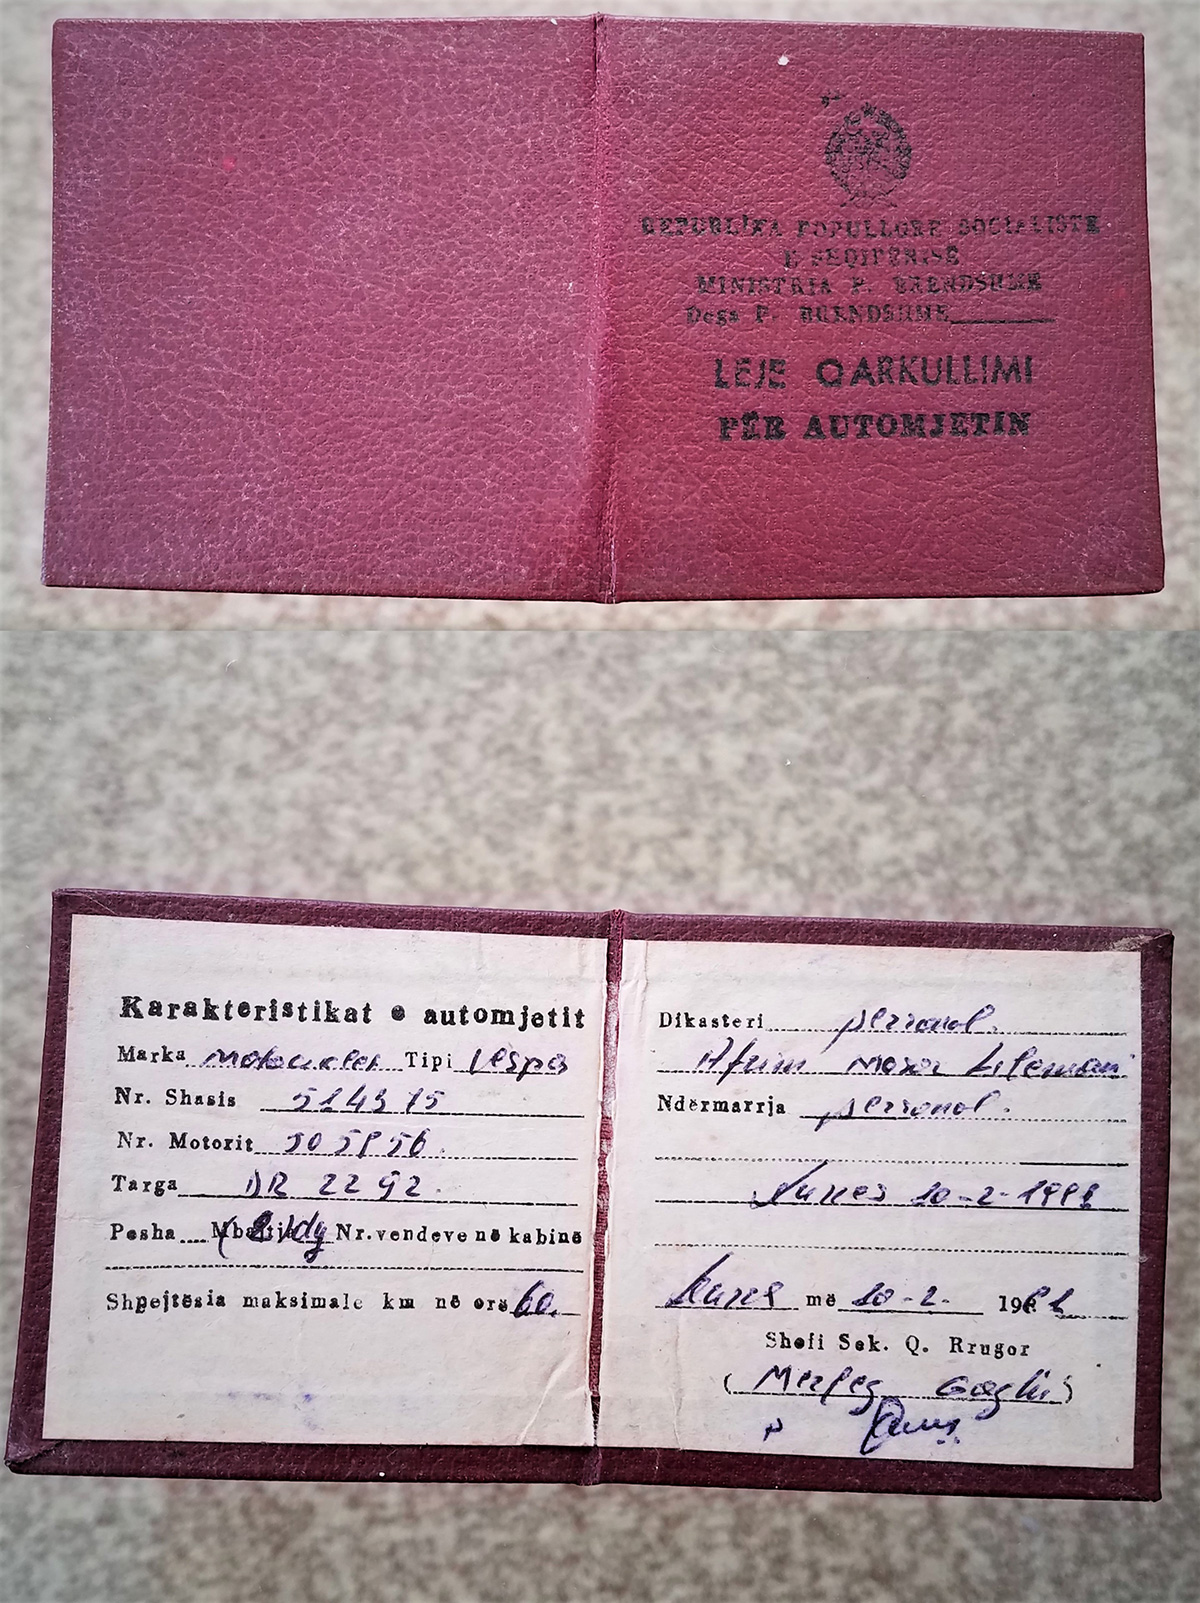 REPUBLIKA POPULLORE SOCIALISTE
E SHQIPERISË
MINISTRIA P. BRENDSHME
Dega P. BRENDSHME
LEJE QARKULLIMI
PËR AUTOMJETIN
Karakteristikat e automjetit
Marka motocikel Tipi Vespa
Nr. Shasis
Nr. Motorit
Targa DR 22 92
Pesha Mbajtja Nr. vendeve në kabinë
Shpejtësia maksimale km në orë 60.
Dikasteri personal.
Afrim
Ndërmarrja personal.
Durres 10-2-
Durres më 10-2- 198
Shefi Sek. Q. Rrugor